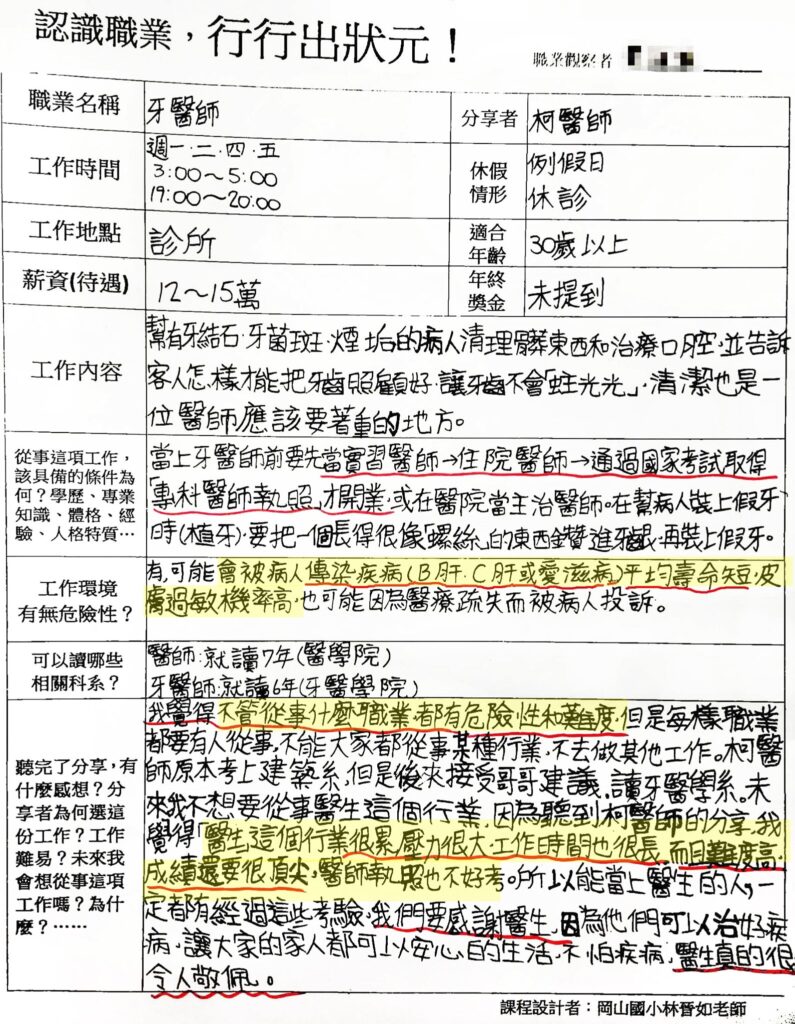 認識職業，行行出狀元！
職業觀察者
職業名稱 牙醫師 分享者 柯醫師
工作時間 週一.二.四.五 3:00～5:00 19:00～20:00 休假情形 例假日 休診
工作地點 診所 適合年齡 30歲以上
薪資(待遇) 12～15萬 年終獎金 未提到
工作內容
幫有牙結石.牙菌斑.煙垢的病人清理髒東西和治療口腔,並告訴
客人怎樣才能把牙齒照顧好,讓牙齒不會「蛀光光」,清潔也是一
位醫師應該要著重的地方。
從事這項工作，
該具備的條件為
何？學歷、專業
知識、體格、經
驗、人格特質…
當上牙醫師前要先當實習醫師→住院醫師→通過國家考試取得
「專科醫師執照」才開業,或在醫院當主治醫師。在幫病人裝上假牙
時(植牙),要把一個長得很像「螺絲」的東西鑽進牙齦,再裝上假牙。
工作環境
有無危險性？
有,可能會被病人傳染疾病(B肝.C肝或愛滋病)平均壽命短,皮
膚過敏機率高,也可能因為醫療疏失而被病人投訴。
可以讀哪些
相關科系？
醫師:就讀7年(醫學院)
牙醫師:就讀6年(牙醫學院)
聽完了分享，有
什麼感想？分
享者為何選這
份工作？工作
難易？未來我
會想從事這項
工作嗎？為什
麼？……
我覺得不管從事什麼職業,都有危險性和難度,但是每樣職業
都要有人從事,不能大家都從事某種行業,不去做其他工作。柯醫
師原本考上建築系,但是後來接受哥哥建議,讀牙醫學系。未
來我不想要從事醫生這個行業,因為聽到柯醫師的分享,我
覺得「醫生」這個行業很累,壓力很大,工作時間也很長,而且難度高,
成績還要很頂尖,醫師執照也不好考。所以能當上醫生的人,一
定都有經過這些考驗,我們要感謝醫生,因為他們可以治好疾
病,讓大家的家人都可以安心的生活,不怕疾病,醫生真的很
令人敬佩。
課程設計者：岡山國小林晉如老師